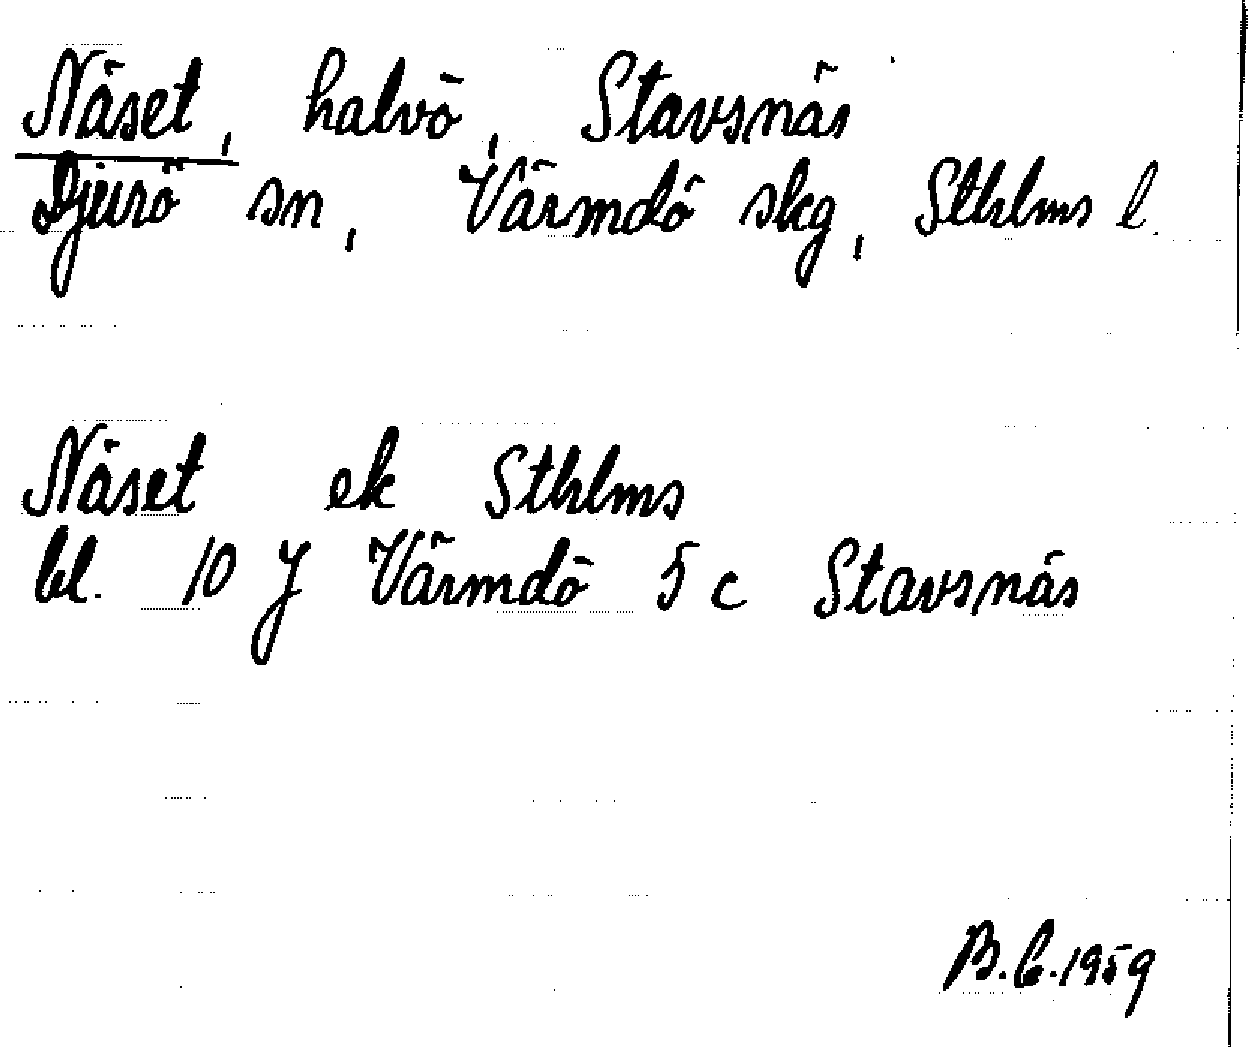 Näset, halvö, Stavsnäs
Djurö sn, Värmdö skg, Sthlms l.
Näset ek Sthlms
bl. 10 J Värmdö 5 c Stavsnäs
B.C.1959